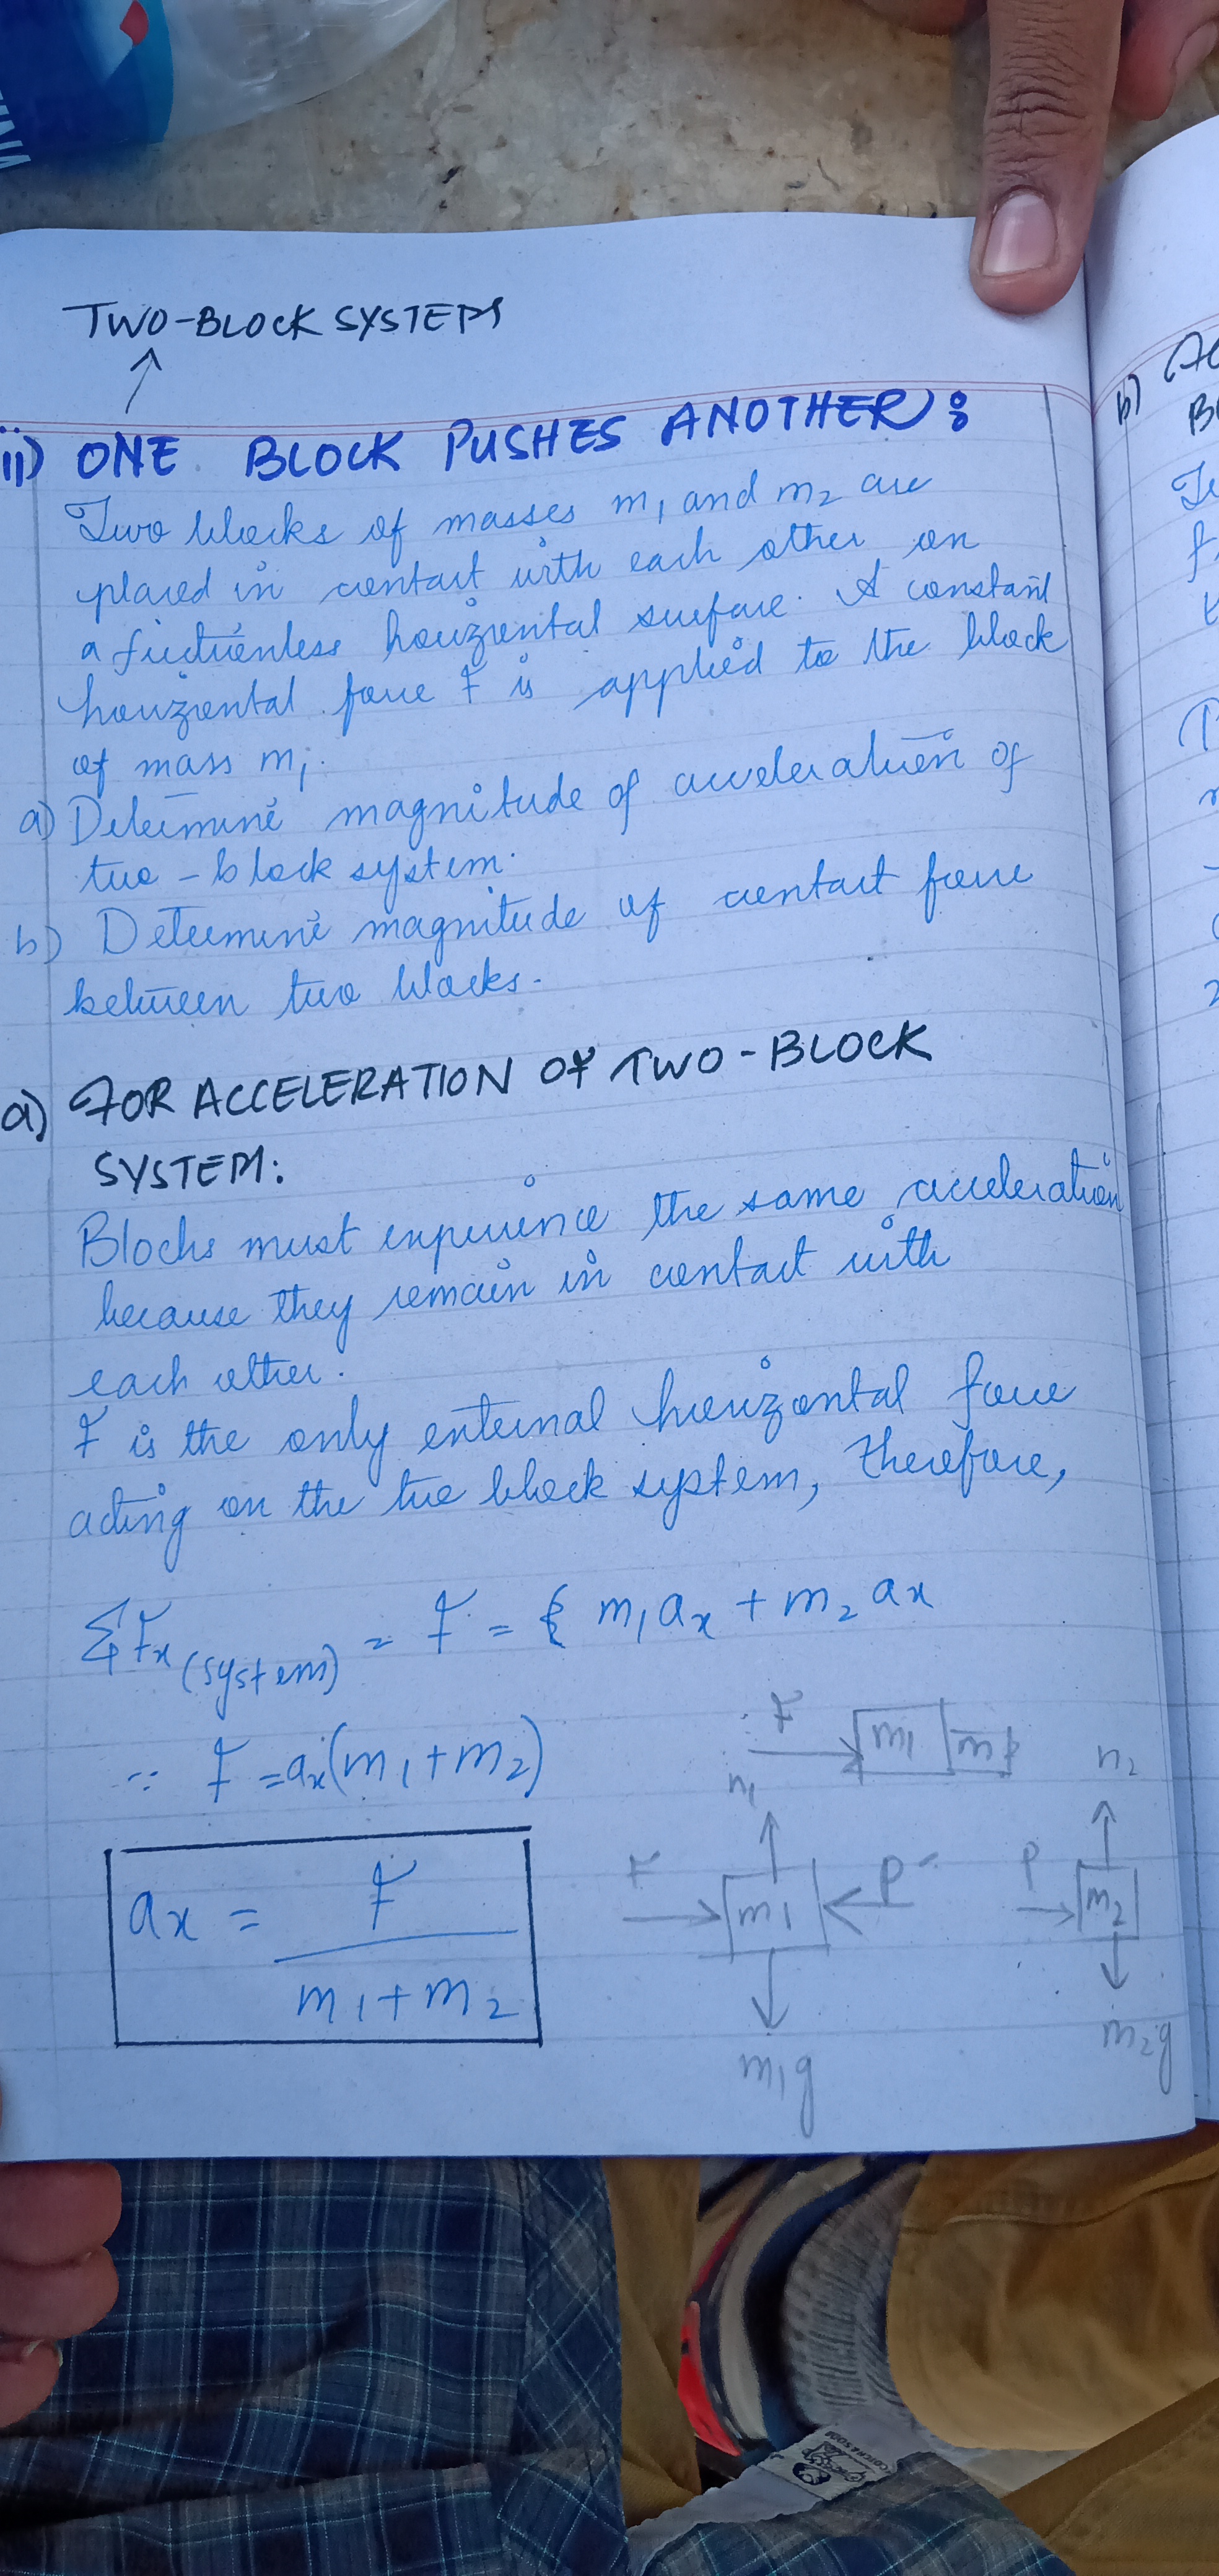 TWO-BLOCK SYSTEM
ii) ONE BLOCK PUSHES ANOTHER:
Two blocks of masses m₁ and m₂ are
placed in contact with each other on
a frictionless horizontal surface. A constant
horizontal force F is applied to the block
of mass m₁.
a) Determine magnitude of acceleration of
two-block system.
b) Determine magnitude of contact force
between two blocks.
a) FOR ACCELERATION OF TWO-BLOCK
SYSTEM:
Blocks must experience the same acceleration
because they remain in contact with
each other.
F is the only external horizontal force
acting on the two block system, therefore,
ΣFx (system) = F = m₁ax + m₂ax
∵ F = ax(m₁+m₂)
ax = F / m₁+m₂
F m₁ m₂
n₁ F m₁ P´ m₁g
n₂ P m₂ m₂g
b)